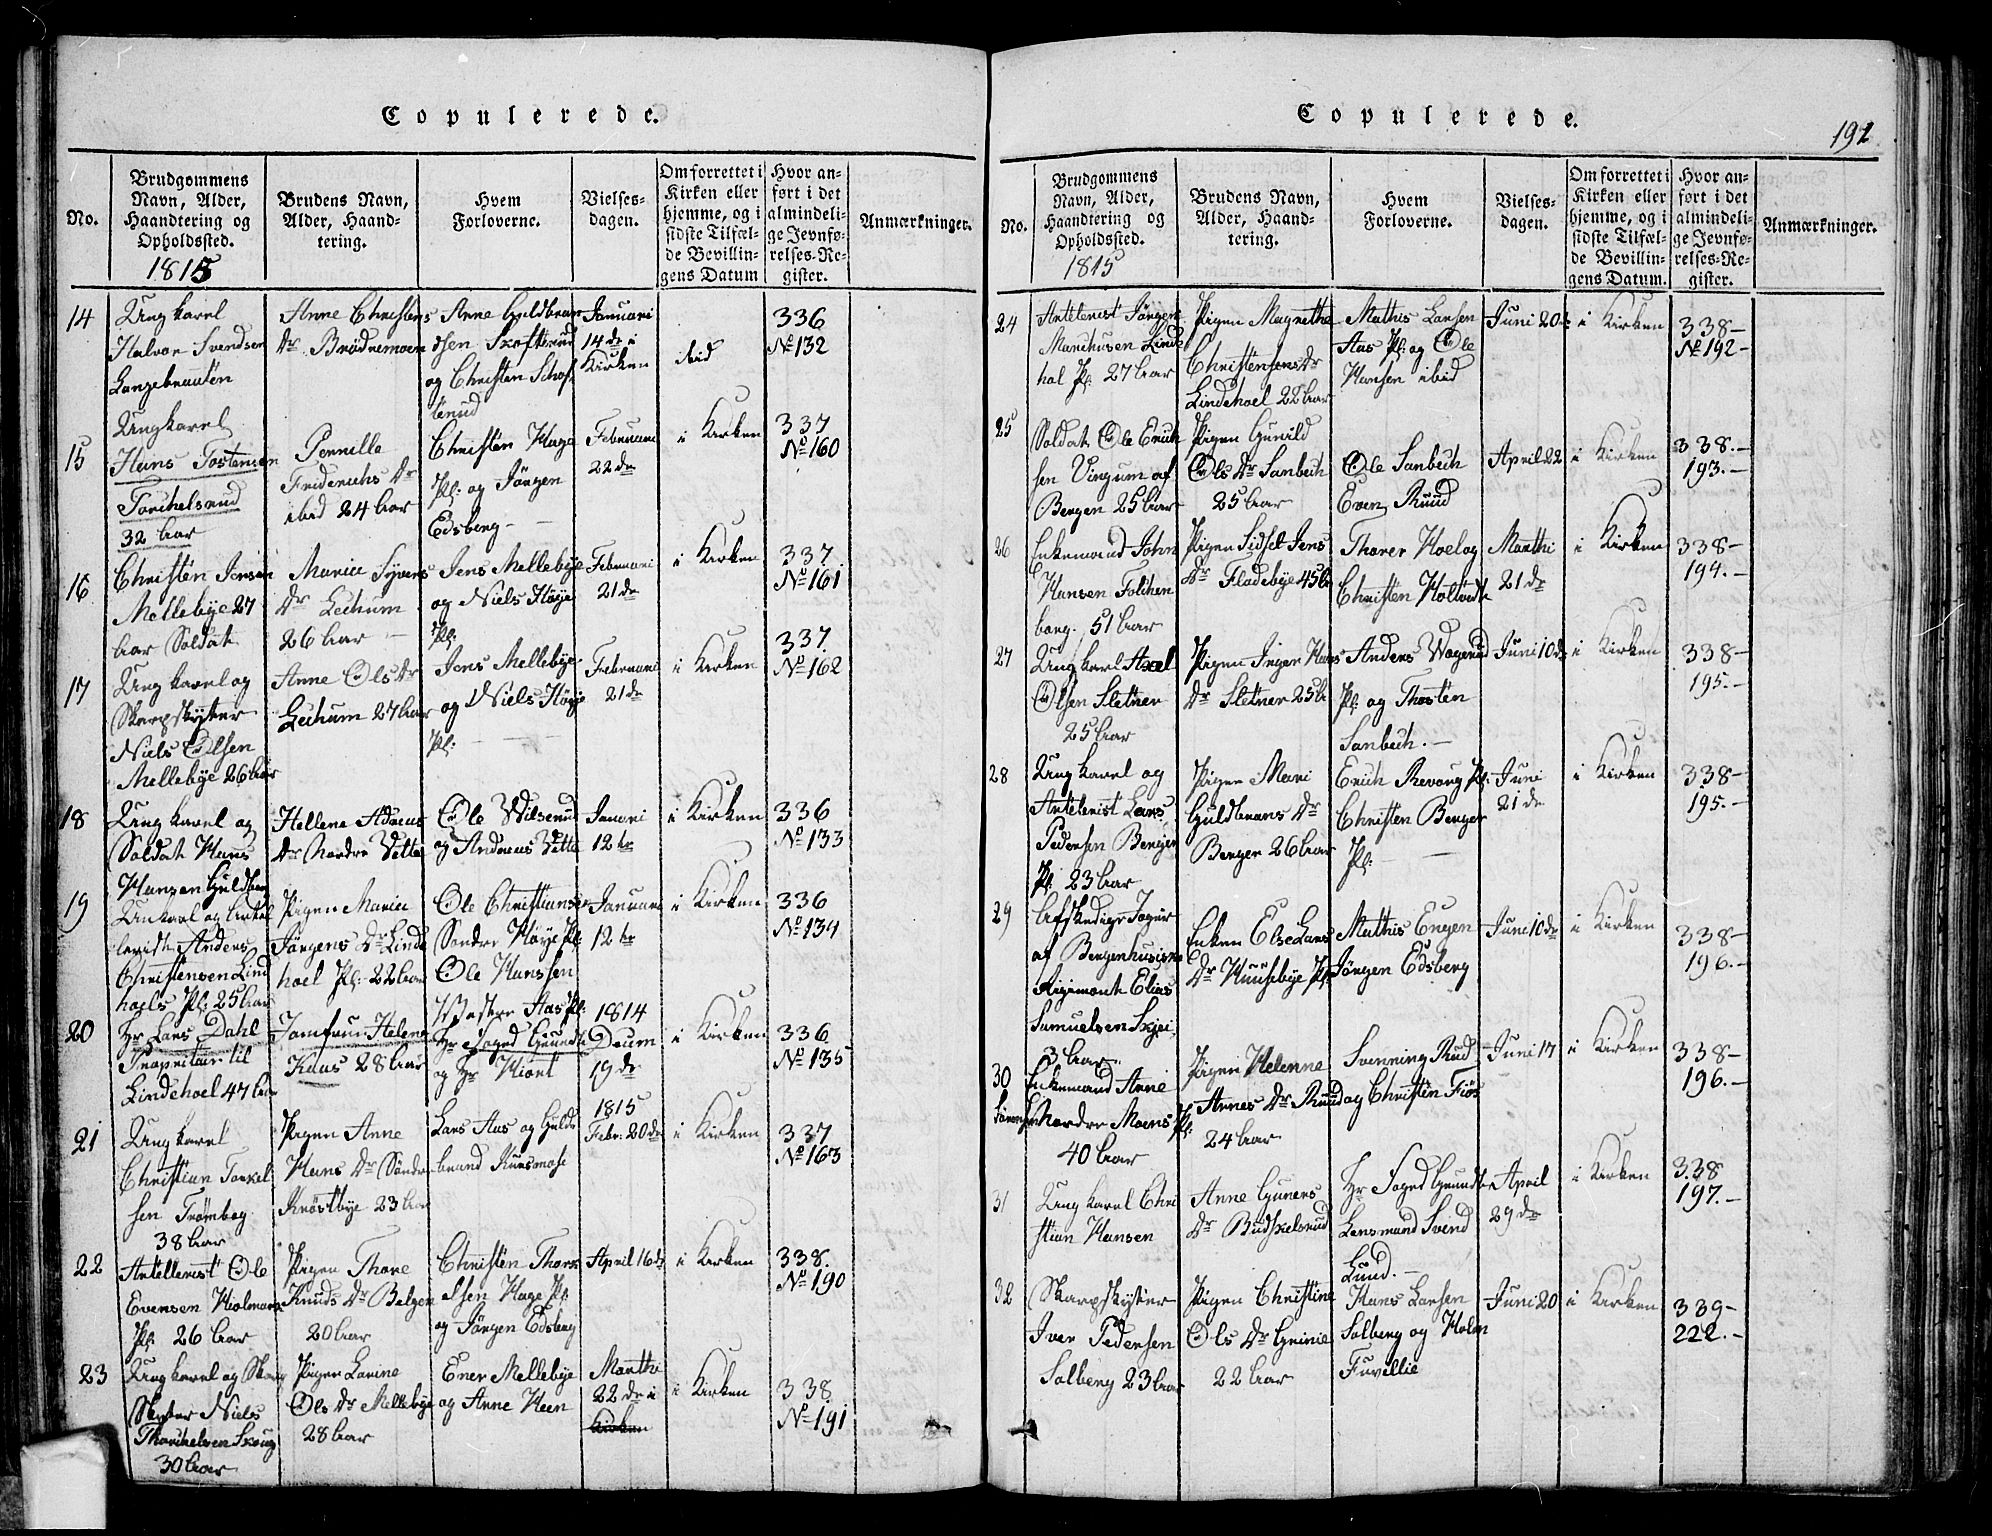 Copulerede.
No.
Brudgommens
Navn, Alder,
Haandtering og
Opholdssted.
1815
Brudens Navn,
Alder, Haand-
tering.
Hvem
Forloverne.
Vielses-
dagen.
Om forrettet i
Kirken eller
hjemme, og i
sidste Tilfæl-
de Bevillin-
gens Datum
Hvor an-
ført i det
almindeli-
ge Jevnfø-
relses-Re-
gister.
Anmærkninger.
14
Ung karel
Halvor Svendsen
Langebraaten
Anne Christens
Dr Brødremoen
Anne Guldbran
dsen Skofterud
og Christen Schof
terud
Januari
14 de i
Kirken
ibid
336
No 132
15
Ungkarel
Hans Tostensen
Torchelsrud
32 Aar
Pernille
Friderichs Dr
ibid 24 Aar
Christen Hage
Pl: og Jörgen
Edsberg
Februari
22 de
i Kirken
337
No 160
16
Christen Jensen
Mellebye 27
Aar Soldat
Marie Syvers
Dr Leihum
26 Aar
Jens Mellebye
og Niels Höye
Pl:
Februari
21 de
i Kirken
337
No 161
17
Ung karel og
Skarpskytter
Niels Olsen
Mellebye 26 Aar
Anne Ols Dr
Leihum 27 Aar
Jens Mellebye
og Niels Höye
Pl:
Februari
21 de
i Kirken
337
No 162
18
Ung karel og
Soldat Hans
Hansen Guldberg
Hellene Adneus
Dr Nordre Vette
Ole Wilserud
og Andreas Vette
Januari
12 te
i Kirken
336
No 133
19
Unkarl og Artel
lerist Anders
Christensen Lind
hoels Pl: 25 Aar
Pigen Marie
Jörgens Dr Linde
hoel Pl: 22 Aar
Ole Christiansen
Söndre Höye Pl:
Ole Hanssen
Westre Aas Pl:
Januari
12 te
i Kirken
336
No 134
20
Hr Lars Dahl
Proprietair til
Lindehoel 47 Aar
Jomfrue Helene
Kaas 28 Aar
Hr Foged Grundt
og Hr Hiort
1814
Deum
19 de
i Kirken
336
No 135
21
Ung karel
Christian Torkel
sen Trömbog
38 Aar
Pigen Anne
Hans Dr Söndre
Knöstbye 23 Aar
Lars Aas og Guld
brand Kursmose
1815
Febr: 20 de
i Kirken
337
No 163
22
Artellerist Ole
Evensen Hiolmark
Pl: 26 Aar
Pigen Thore
Knuds Dr Belgen
20 Aar
Christen Thors
elsen Hage Pl
og Jörgen Edsberg
April 16 de
i Kirken
338.
No 190
23
Ung karel og Skarp
Skytter Niels
Thorchelsen Skoug
30 Aar
Pigen Larine
Ols Dr Mellebye
28 Aar
Ener Mellebye
og Arne Heen
Marthi
22 de i
Kirken
i Kirken
338
No 191
Copulerede.
191
No.
Brudgommens
Navn, Alder,
Haandtering og
Opholdssted.
1815
Brudens Navn,
Alder, Haand-
tering.
Hvem
Forloverne.
Vielses-
dagen.
Om forrettet i
Kirken eller
hjemme, og i
sidste Tilfæl-
de Bevillin-
gens Datum.
Hvor an-
ført i det
almindeli-
ge Jevnfø-
relses-Re-
gister.
Anmærkninger.
24
Artelerist Jörgen
Marchusen Linde
hol Pl: 27 Aar
Pigen Magnethe
Christensens Dr
Lindehoel 22 Aar
Mathis Larsen
Aas Pl: og Ole
Hansen ibid
Juni 20 de
i Kirken
338-
No 192-
25
Soldat Ole Erich
sen Vingum af
Bergen 25 Aar
Pigen Gunild
Ols Dr Sanbech
25 Aar
Ole Sanbech
Even Ruud
April 22
i Kirken
338.-
193.-
26
Enkemand John
Hansen Folchen
borg. 51 Aar
Pigen Sidsel Jens
Dr Fladebye 45 Aar
Thorer Hoel og
Christen Holtvedt
Marthi
21 de
i Kirken
338-
194.-
27
Ung karl Axel
Olsen Sletner
25 Aar
Pigen Inger Hans
Dr Sletner 25 Aar
Anders Wogerud
Pl: og Thosten
Sanbech.-
Juni 10 de
i Kirken
338-
195.-
28
Ung karel og
Artelerist Lars
Pedersen Berger
Pl 23 Aar
Pigen Mari
Guldbrans Dr
Berger 26 Aar
Erich Revoug Pl:
Christen Berger
Pl:
Juni
21 de
i Kirken
338-
195.-
29
Afskediget Jeger
af Bergenhusiske
Rigimente Elias
Samuelsen Skjei
3 Aar
Enken Else Lars
Dr Huusebye Pl:
Mathis Engen
Jörgen Edsberg
Juni 10 de
i Kirken
338-
196.-
30
Enkemand Arne
Nordre Moens Pl:
40 Aar
Pigen Helenne
Arnes Dr Ruud
24 Aar
Svenning Rud
og Christen Fiös
Juni 17
i Kirken
338-
196.-
31
Ung karel Chri
stian Hansen
Anne Guners
Dr Budskelsrud
Hr Foged Grundt
Lensmand Svend
Lund.-
April
29 de
i Kirken
338
197.-
32
Skarpskytter
Iver Pedersen
Solberg 23 Aar
Pigen Christine
Ols Dr Grinie
22 Aar
Hans Larsen
Solberg og Holm
Fuvellie
Juni 20
i Kirken
339-
222.-